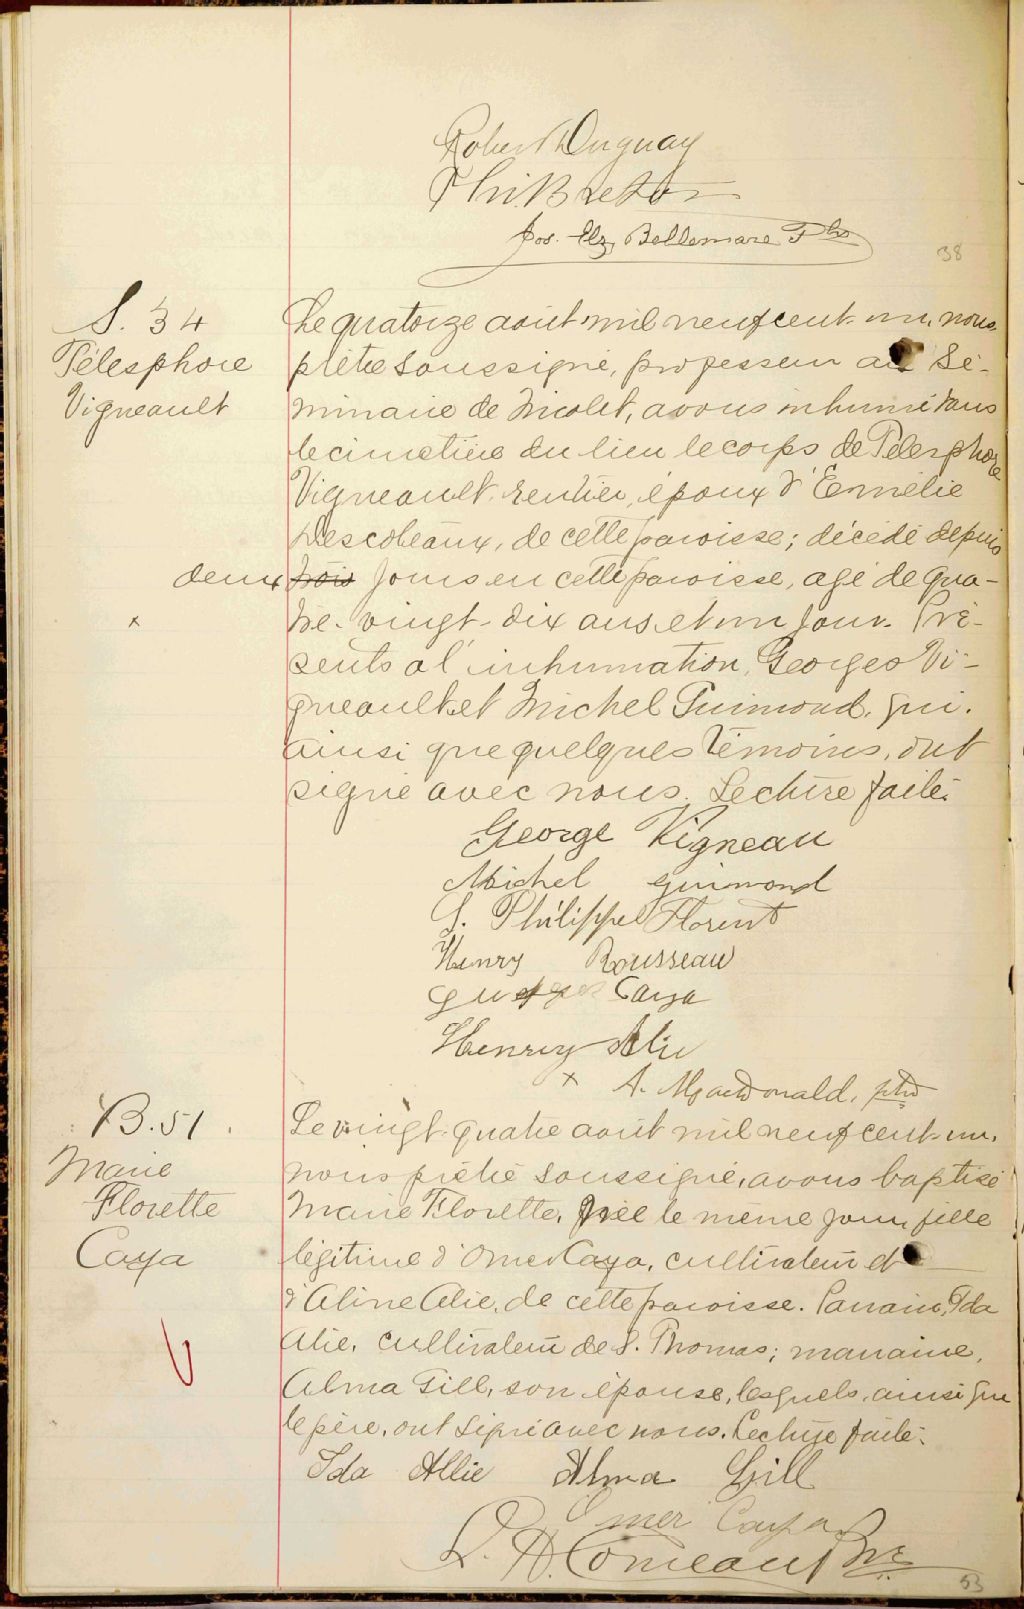 Robert Duguay
Phi. Breton
Jos. Elz. Bellemare Ptre
38
S. 34
Télesphore
Vigneault
Le quatorze août mil neuf cent-un, nous
prêtre soussigné, professeur au Sé-
minaire de Nicolet, avons inhumé dans
le cimetière du lieu le corps de Télesphore
Vigneault, rentier, époux d'Emélie
Descoteaux, de cette paroisse; décédé depuis
deux trois jours en cette paroisse, agé de qua-
tre-vingt-dix ans et un jour. Pré-
x
sents a l'inhumation, Georges Vi-
gneault et Michel Guimond, qui,
ainsi que quelques témoins, ont
signé avec nous. Lecture faite.
George Vigneau
Michel Guimond
S. Philippe Florent
Henry Rousseau
Caya
Henry Alie
x A. Macdonald, ptre
B. 51.
Marie
Florette
Caya
Le vingt-quatre août mil neuf cent-un,
nous prêtre soussigné, avons baptisé
Marie Florette, née le même jour, fille
légitime d'Omer Caya, cultivateur et
d'Aline Alie, de cette paroisse. Parrain, Ida
Alie, cultivateur de S. Thomas; marraine,
Alma Gill, son épouse, lesquels, ainsi que
le père, ont signé avec nous. Lecture faite.
Ida Allie Alma Gill
Omer Caya
L. A. Comeau Ptre
53